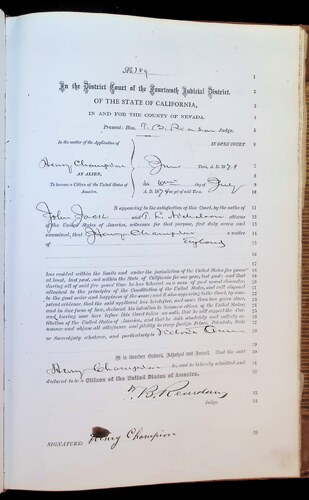 In the District Court of the Fourteenth Judicial District,
OF THE STATE OF CALIFORNIA,
IN AND FOR THE COUNTY OF NEVADA.
Present: Hon. T. B. Reardan Judge.
In the matter of the Application of
IN OPEN COURT
Henry Champion
AN ALIEN,
June Term, A.D. 187
To become a Citizen of the United States of
America.
this day of July
A. D. 187 of said Term.
It appearing to the satisfaction of this Court, by the oaths of
John and T. L. citizens
of the United States of America, witnesses for that purpose, first duly sworn and
examined, that Henry Champion a native
of England
has resided within the limits and under the jurisdiction of the United States five years
at least, last past, and within the State of California for one year, last past; and that
during all of said five years' time he has behaved as a man of good moral character,
attached to the principles of the Constitution of the United States, and well disposed
to the good order and happiness of the same; and it also appearing to the Court, by competent
evidence, that the said applicant has heretofore, and more than two years since,
and in due form of law, declared his intention to become a citizen of the United States;
and having now here before this Court taken an oath, that he will support the Constitution
of the United States of America, and that he doth absolutely and entirely renounce
and abjure all allegiance and fidelity to every foreign Prince, Potentate, State
or Sovereignty whatever, and particularly to
It is therefore Ordered, Adjudged and Decreed, That the said
Henry Champion be, and he is hereby admitted and
declared to be a Citizen of the United States of America.
T. B. Reardan
Judge.
SIGNATURE: Henry Champion